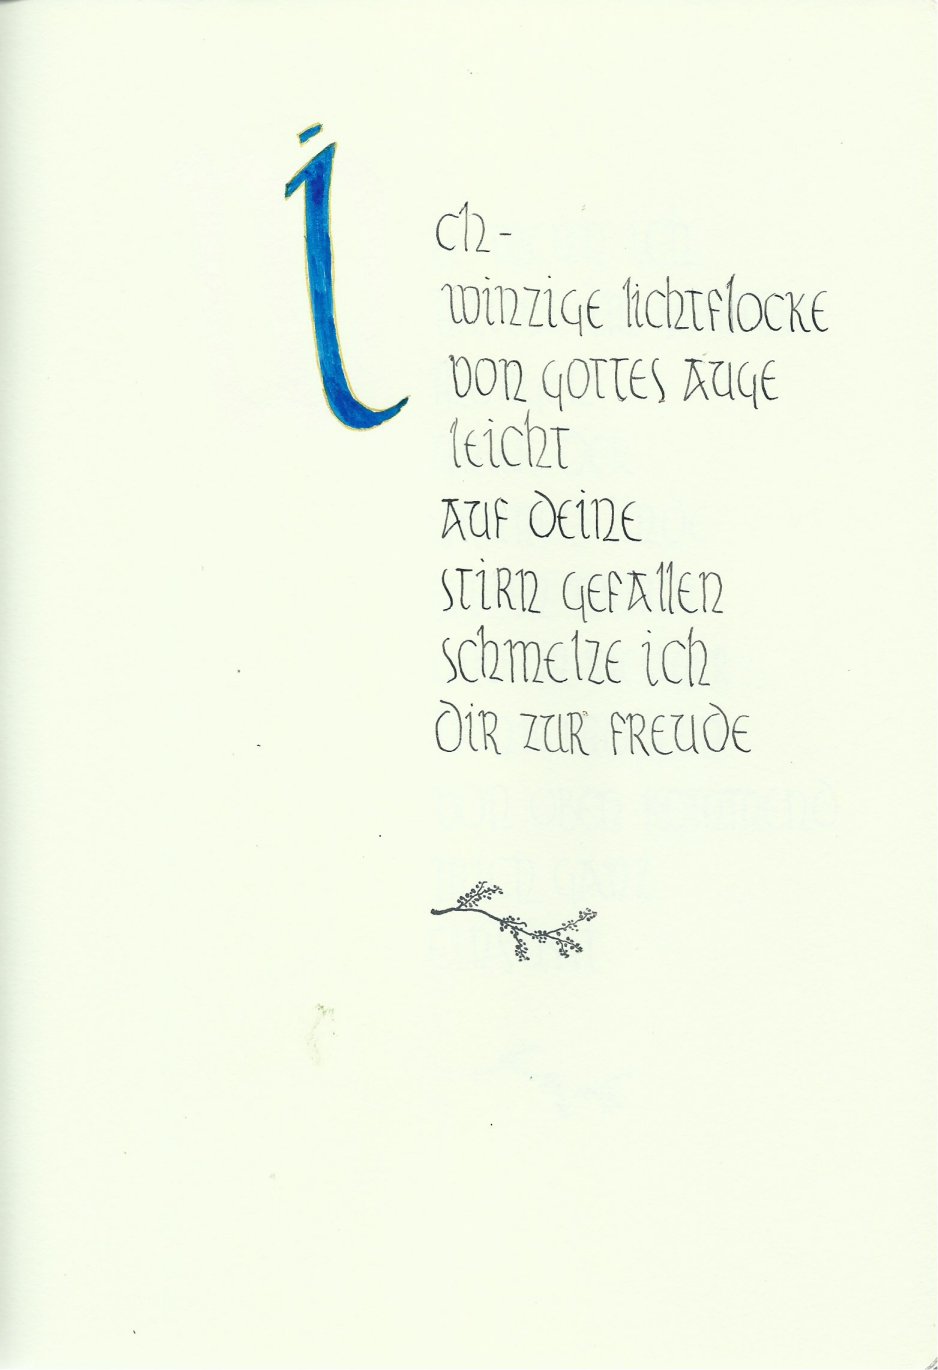 ich -
winzige lichtflocke
von gottes auge
leicht
auf deine
stirn gefallen
schmelze ich
dir zur freude